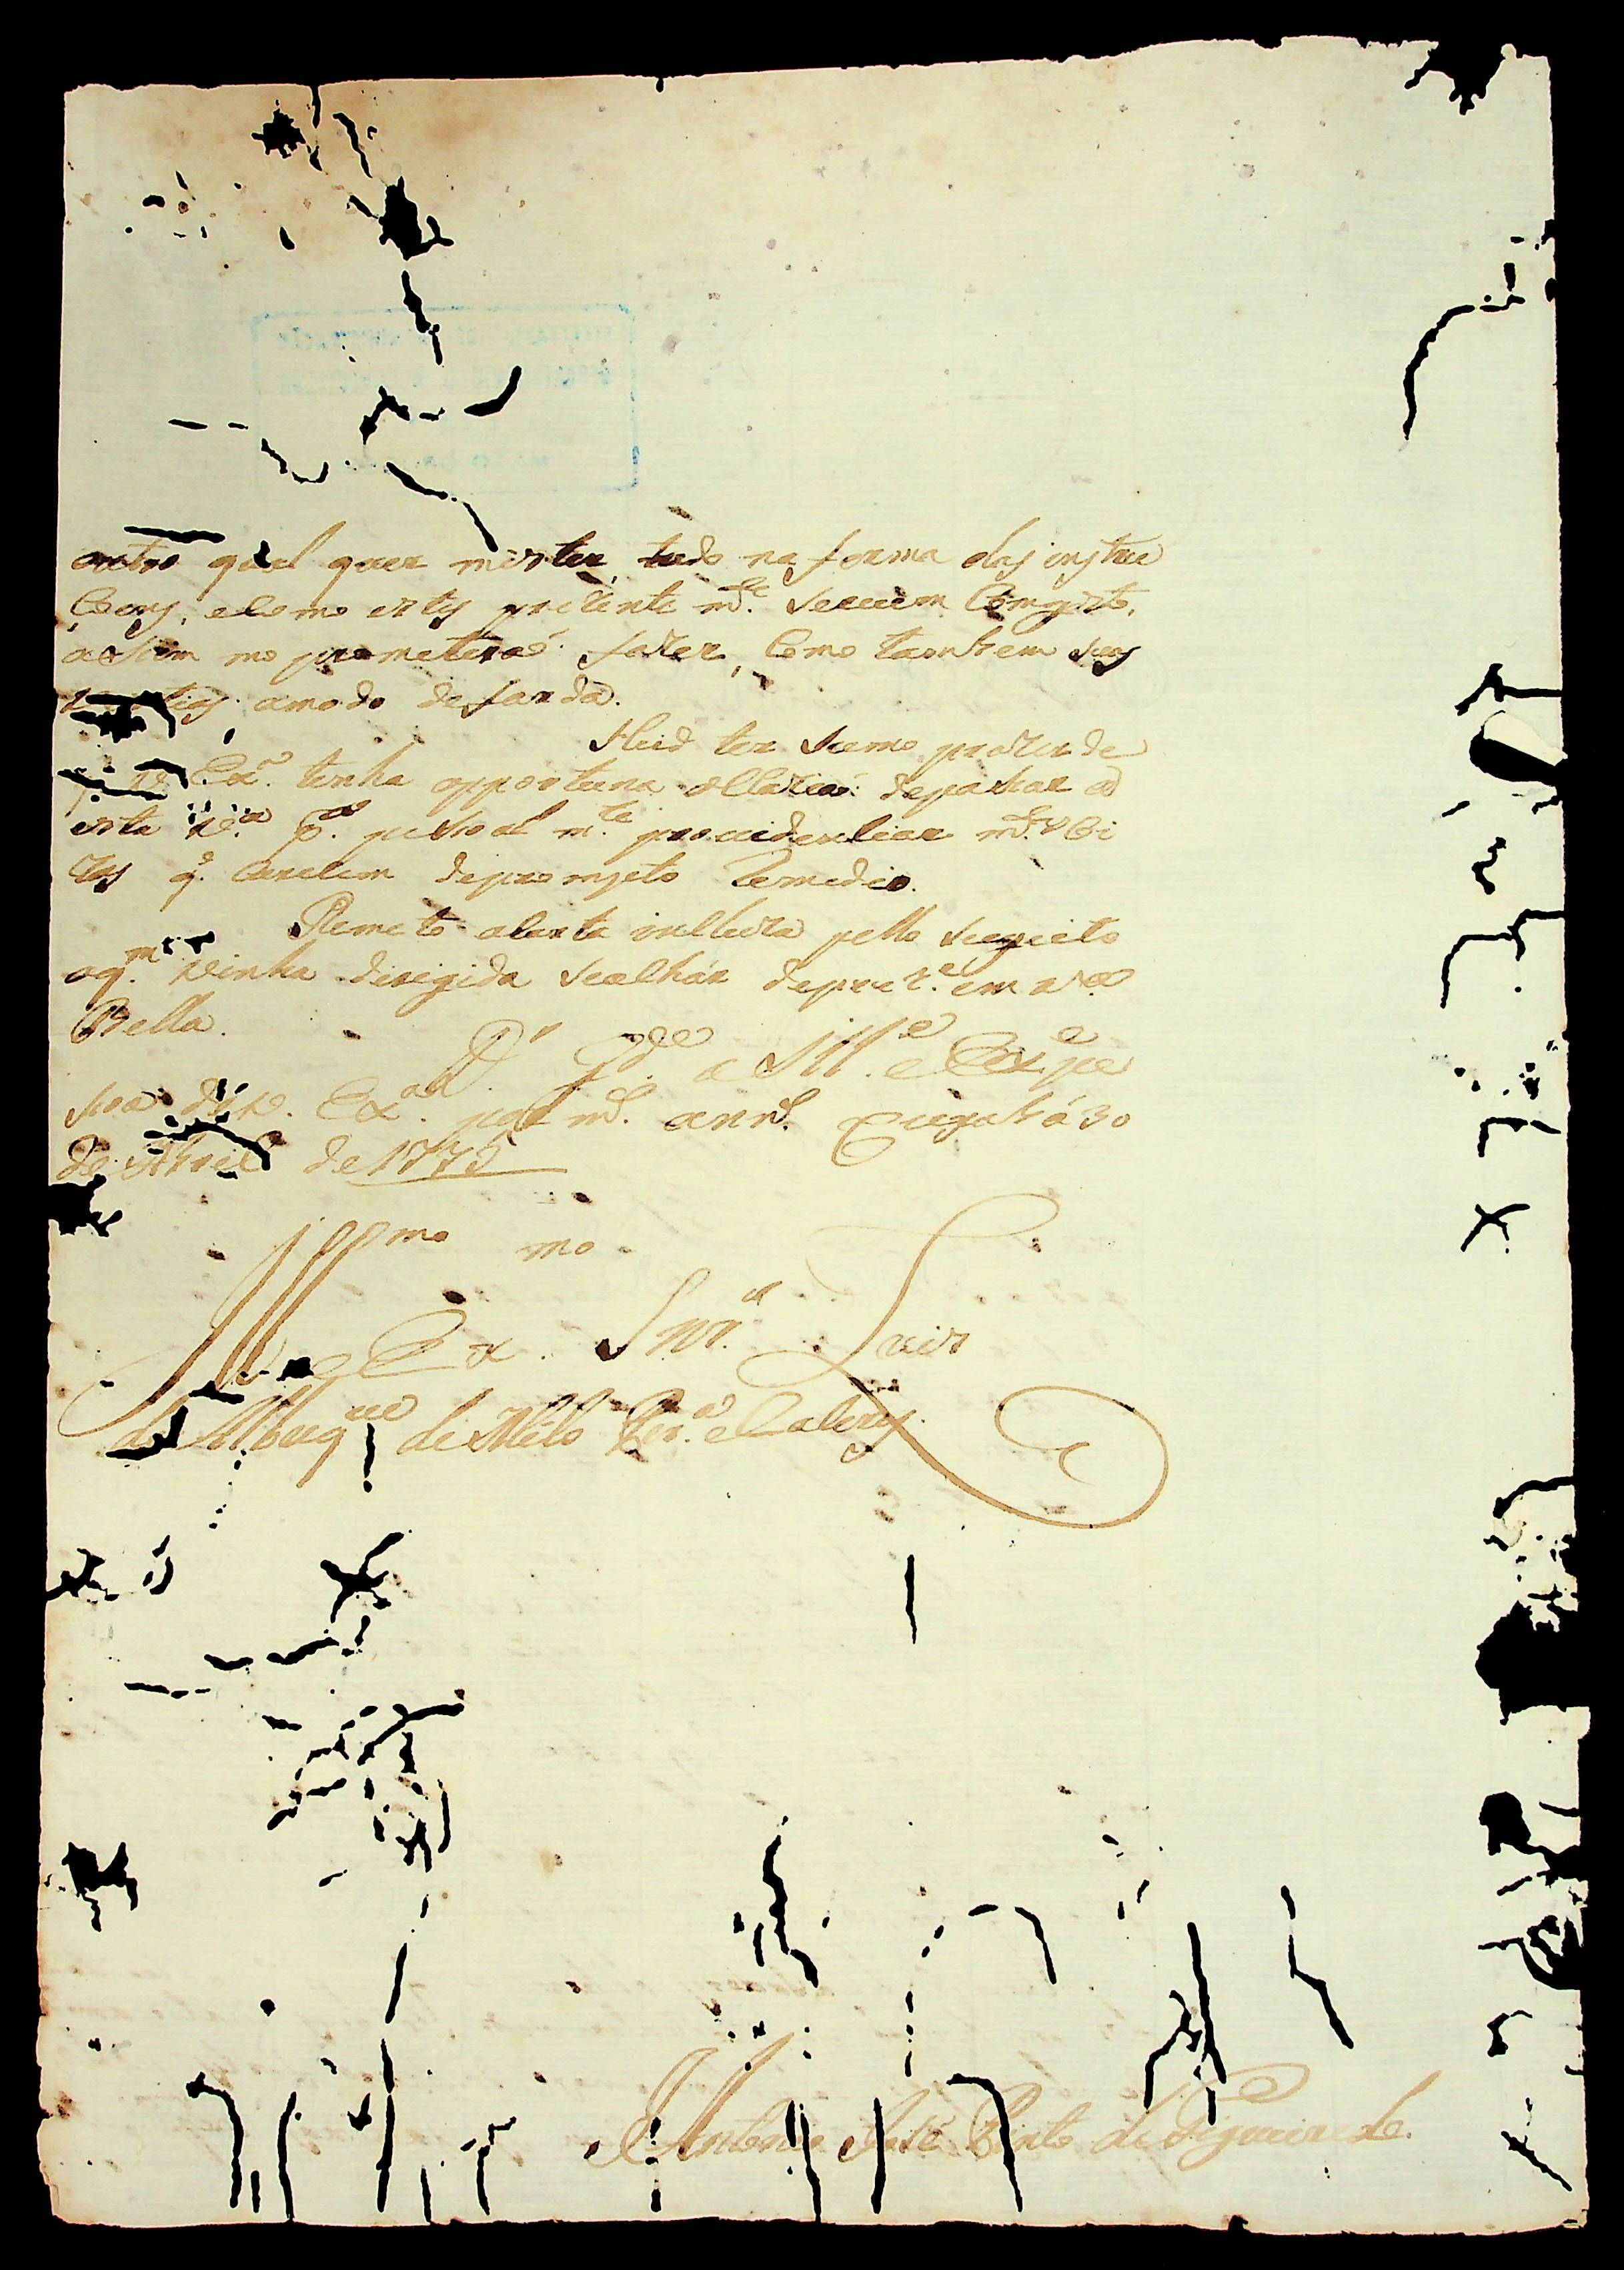 outro qual quer mister, tudo na forma das instru
Coens, e Como estes prezente m.te seacem Comgisto,
assim mo prometeraó fazer, Como tambem seus
amodo de farda.
Heid ter sumo prazer de
Ex.a tenha opportuna ollaziaó depassar a
esta V.a p.a pessoal m.te providenciar m.tos
q. Carecem deprompto Remedio.
Remeto a Carta incluza pello sugeito
aq.m vinha dirigida sealhar deprez.e em V.a
Bella.
D.s g.de a Ill.e e Ex.e pe
soa de V. Ex.a por m.s ann.s Cuyabá 30
de Abril de 1775
Ill.mo e Ex.mo Snr. Luis
de Albuq.ue de Mello Per.a e Caleres
Antonio José Pinto de Figueiredo.